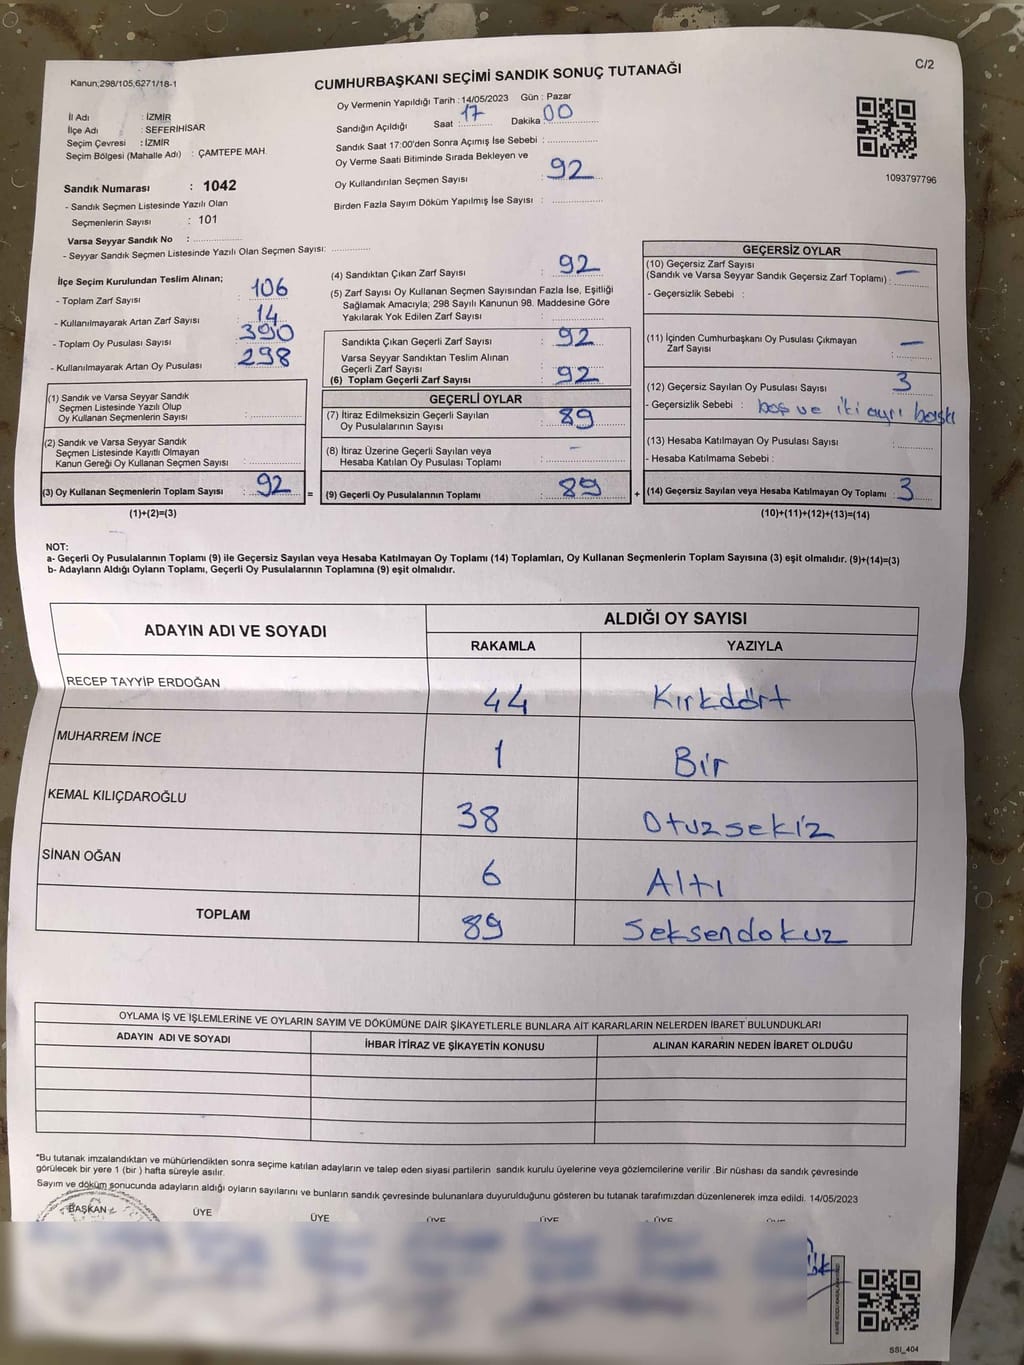 C/2
Kanun;298/105,6271/18-1
CUMHURBAŞKANI SEÇİMİ SANDIK SONUÇ TUTANAĞI
Oy Vermenin Yapıldığı Tarih : 14/05/2023 Gün : Pazar
İl Adı : İZMİR
İlçe Adı : SEFERİHİSAR
Seçim Çevresi : İZMİR
Seçim Bölgesi (Mahalle Adı) : ÇAMTEPE MAH.
Sandığın Açıldığı Saat : 17 Dakika : 00
Sandık Saat 17:00'den Sonra Açımış İse Sebebi :
Oy Verme Saati Bitiminde Sırada Bekleyen ve
Oy Kullandırılan Seçmen Sayısı : 92
Birden Fazla Sayım Döküm Yapılmış İse Sayısı :
1093797796
Sandık Numarası : 1042
- Sandık Seçmen Listesinde Yazılı Olan
Seçmenlerin Sayısı : 101
Varsa Seyyar Sandık No :
- Seyyar Sandık Seçmen Listesinde Yazılı Olan Seçmen Sayısı:
İlçe Seçim Kurulundan Teslim Alınan;
- Toplam Zarf Sayısı : 106
- Kullanılmayarak Artan Zarf Sayısı : 14
- Toplam Oy Pusulası Sayısı : 390
- Kullanılmayarak Artan Oy Pusulası : 298
(1) Sandık ve Varsa Seyyar Sandık
Seçmen Listesinde Yazılı Olup
Oy Kullanan Seçmenlerin Sayısı :
(2) Sandık ve Varsa Seyyar Sandık
Seçmen Listesinde Kayıtlı Olmayan
Kanun Gereği Oy Kullanan Seçmen Sayısı :
(3) Oy Kullanan Seçmenlerin Toplam Sayısı : 92 =
(1)+(2)=(3)
(4) Sandıktan Çıkan Zarf Sayısı : 92
(5) Zarf Sayısı Oy Kullanan Seçmen Sayısından Fazla İse, Eşitliği
Sağlamak Amacıyla; 298 Sayılı Kanunun 98. Maddesine Göre
Yakılarak Yok Edilen Zarf Sayısı :
Sandıkta Çıkan Geçerli Zarf Sayısı : 92
Varsa Seyyar Sandıktan Teslim Alınan
Geçerli Zarf Sayısı :
(6) Toplam Geçerli Zarf Sayısı : 92
GEÇERLİ OYLAR
(7) İtiraz Edilmeksizin Geçerli Sayılan
Oy Pusulalarının Sayısı : 89
(8) İtiraz Üzerine Geçerli Sayılan veya
Hesaba Katılan Oy Pusulası Toplamı : -
(9) Geçerli Oy Pusulalarının Toplamı : 89 +
GEÇERSİZ OYLAR
(10) Geçersiz Zarf Sayısı
(Sandık ve Varsa Seyyar Sandık Geçersiz Zarf Toplamı) : -
- Geçersizlik Sebebi :
(11) İçinden Cumhurbaşkanı Oy Pusulası Çıkmayan
Zarf Sayısı : -
(12) Geçersiz Sayılan Oy Pusulası Sayısı : 3
- Geçersizlik Sebebi : boş ve iki ayrı baskı
(13) Hesaba Katılmayan Oy Pusulası Sayısı :
- Hesaba Katılmama Sebebi :
(14) Geçersiz Sayılan veya Hesaba Katılmayan Oy Toplamı : 3
(10)+(11)+(12)+(13)=(14)
NOT:
a- Geçerli Oy Pusulalarının Toplamı (9) ile Geçersiz Sayılan veya Hesaba Katılmayan Oy Toplamı (14) Toplamları, Oy Kullanan Seçmenlerin Toplam Sayısına (3) eşit olmalıdır. (9)+(14)=(3)
b- Adayların Aldığı Oyların Toplamı, Geçerli Oy Pusulalarının Toplamına (9) eşit olmalıdır.
ADAYIN ADI VE SOYADI
ALDIĞI OY SAYISI
RAKAMLA YAZIYLA
RECEP TAYYİP ERDOĞAN 44 Kırkdört
MUHARREM İNCE 1 Bir
KEMAL KILIÇDAROĞLU 38 Otuzsekiz
SİNAN OĞAN 6 Altı
TOPLAM 89 Seksendokuz
OYLAMA İŞ VE İŞLEMLERİNE VE OYLARIN SAYIM VE DÖKÜMÜNE DAİR ŞİKAYETLERLE BUNLARA AİT KARARLARIN NELERDEN İBARET BULUNDUKLARI
ADAYIN ADI VE SOYADI İHBAR İTİRAZ VE ŞİKAYETİN KONUSU ALINAN KARARIN NEDEN İBARET OLDUĞU
*Bu tutanak imzalandıktan ve mühürlendikten sonra seçime katılan adayların ve talep eden siyasi partilerin sandık kurulu üyelerine veya gözlemcilerine verilir .Bir nüshası da sandık çevresinde
görülecek bir yere 1 (bir ) hafta süreyle asılır.
Sayım ve döküm sonucunda adayların aldığı oyların sayılarını ve bunların sandık çevresinde bulunanlara duyurulduğunu gösteren bu tutanak tarafımızdan düzenlenerek imza edildi. 14/05/2023
BAŞKAN ÜYE ÜYE ÜYE ÜYE ÜYE
SSI_404